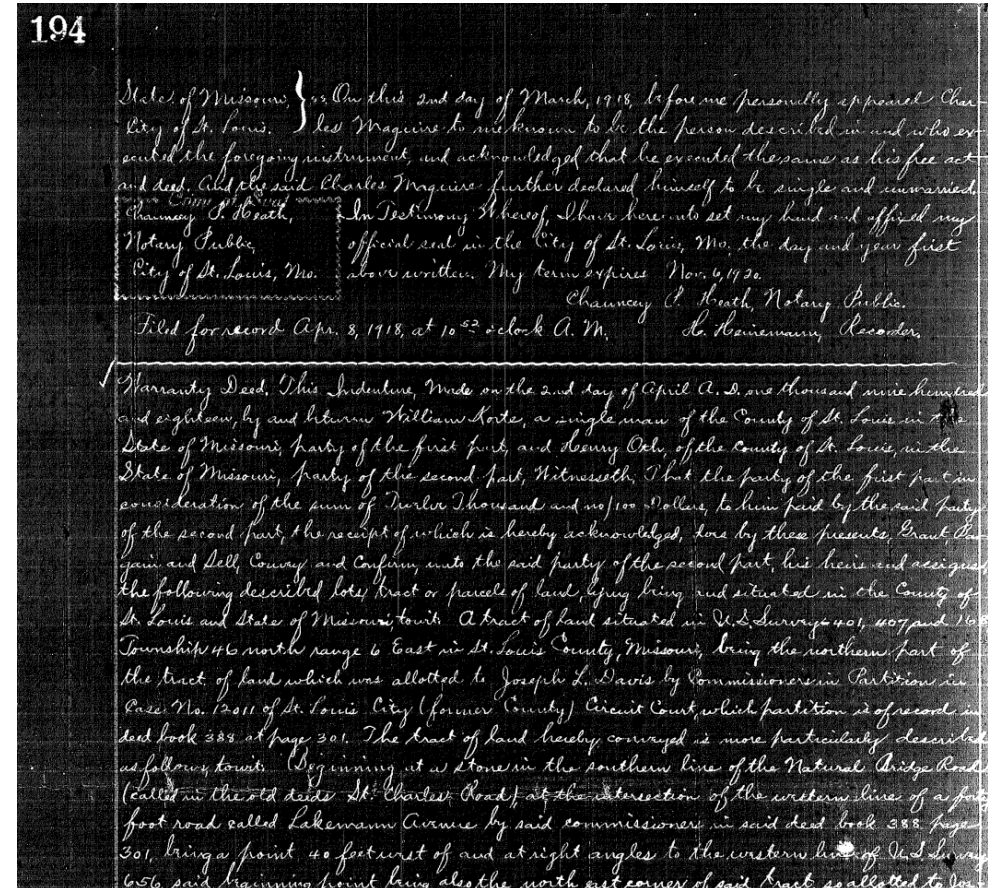 194
State of Missouri, } ss. On this 2nd day of March, 1918, before me personally appeared Char-
City of St. Louis. } les Maguire to me known to be the person described in and who ex-
ecuted the foregoing instrument, and acknowledged that he executed the same as his free act
and deed. And the said Charles Maguire further declared himself to be single and unmarried.
Chauncey P. Heath, In Testimony Whereof, I have hereunto set my hand and affixed my
Notary Public, official seal in the City of St. Louis, Mo. the day and year first
City of St. Louis, Mo. above written. My term expires Nov. 6, 1920.
Chauncey P. Heath, Notary Public.
Filed for record Apr. 8, 1918, at 10 52 oclock A. M. H. Heinemann, Recorder.
Warranty Deed. This Indenture, Made on the 2nd day of April A. D. one thousand nine hundred
and eighteen, by and between William Korte, a single man of the County of St. Louis in the
State of Missouri, party of the first part, and Henry of the County of St. Louis, in the
State of Missouri, party of the second part, Witnesseth, That the party of the first part in
consideration of the sum of Twelve Thousand and no/100 Dollars, to him paid by the said party
of the second part, the receipt of which is hereby acknowledged, by these presents, Grant Bar-
gain and Sell, Convey and Confirm, unto the said party of the second part, his heirs and assigns,
the following described lots, tract or parcels of land, lying being and situated in the County of
St. Louis and State of Missouri, towit: A tract of land situated in U.S. Survey 401, 407, and
Township 46 north range 6 East in St. Louis County, Missouri, being the northern part of
the tract of land which was allotted to Joseph L. Davis by Commissioners in Partition in
Case No. 12011 of St. Louis City (former County) Circuit Court, which partition is of record in
deed book 388 at page 301. The tract of land hereby conveyed is more particularly described
as follows, towit: Beginning at a stone in the southern line of the Natural Bridge Road
(called in the old deeds St. Charles Road) at the intersection of the western line of a forty
foot road called Lakemann Avenue by said commissioners in said deed book 388 page
301, being a point 40 feet west of and at right angles to the western line of U.S. Survey
656 said beginning point being also the north east corner of said tract so allotted to Jos-